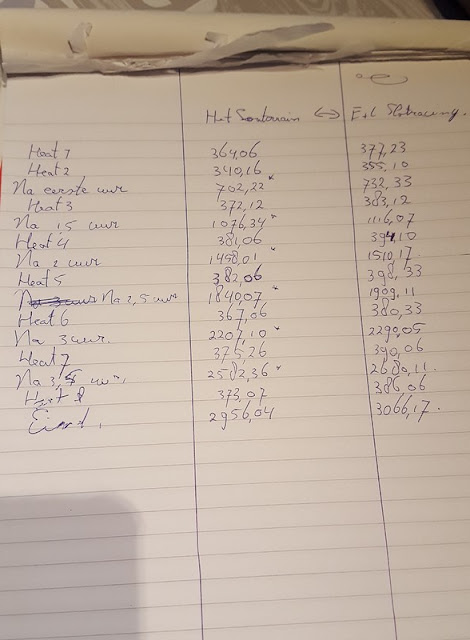 Het Sonterrain <-> E+L Slotracing.
Heat 1 364,06 377,23
Heat 2 340,16 355,10
Na eerste uur 702,22* 732,33
Heat 3 372,12 383,12
Na 1,5 uur 1076,34* 1116,07
Heat 4 381,06 394,10
Na 2 uur 1458,01* 1510,17.
Heat 5 382,06 398,33
Na 2,5 uur 1840,07* 1909,11
Heat 6 367,06 380,33
Na 3 uur. 2207,10* 2290,05
Heat 7 375,26 390,06
Na 3,5 uur. 2582,36* 2680,11.
Heat 8 373,07 386,06
Eind. 2956,04 3066,17.